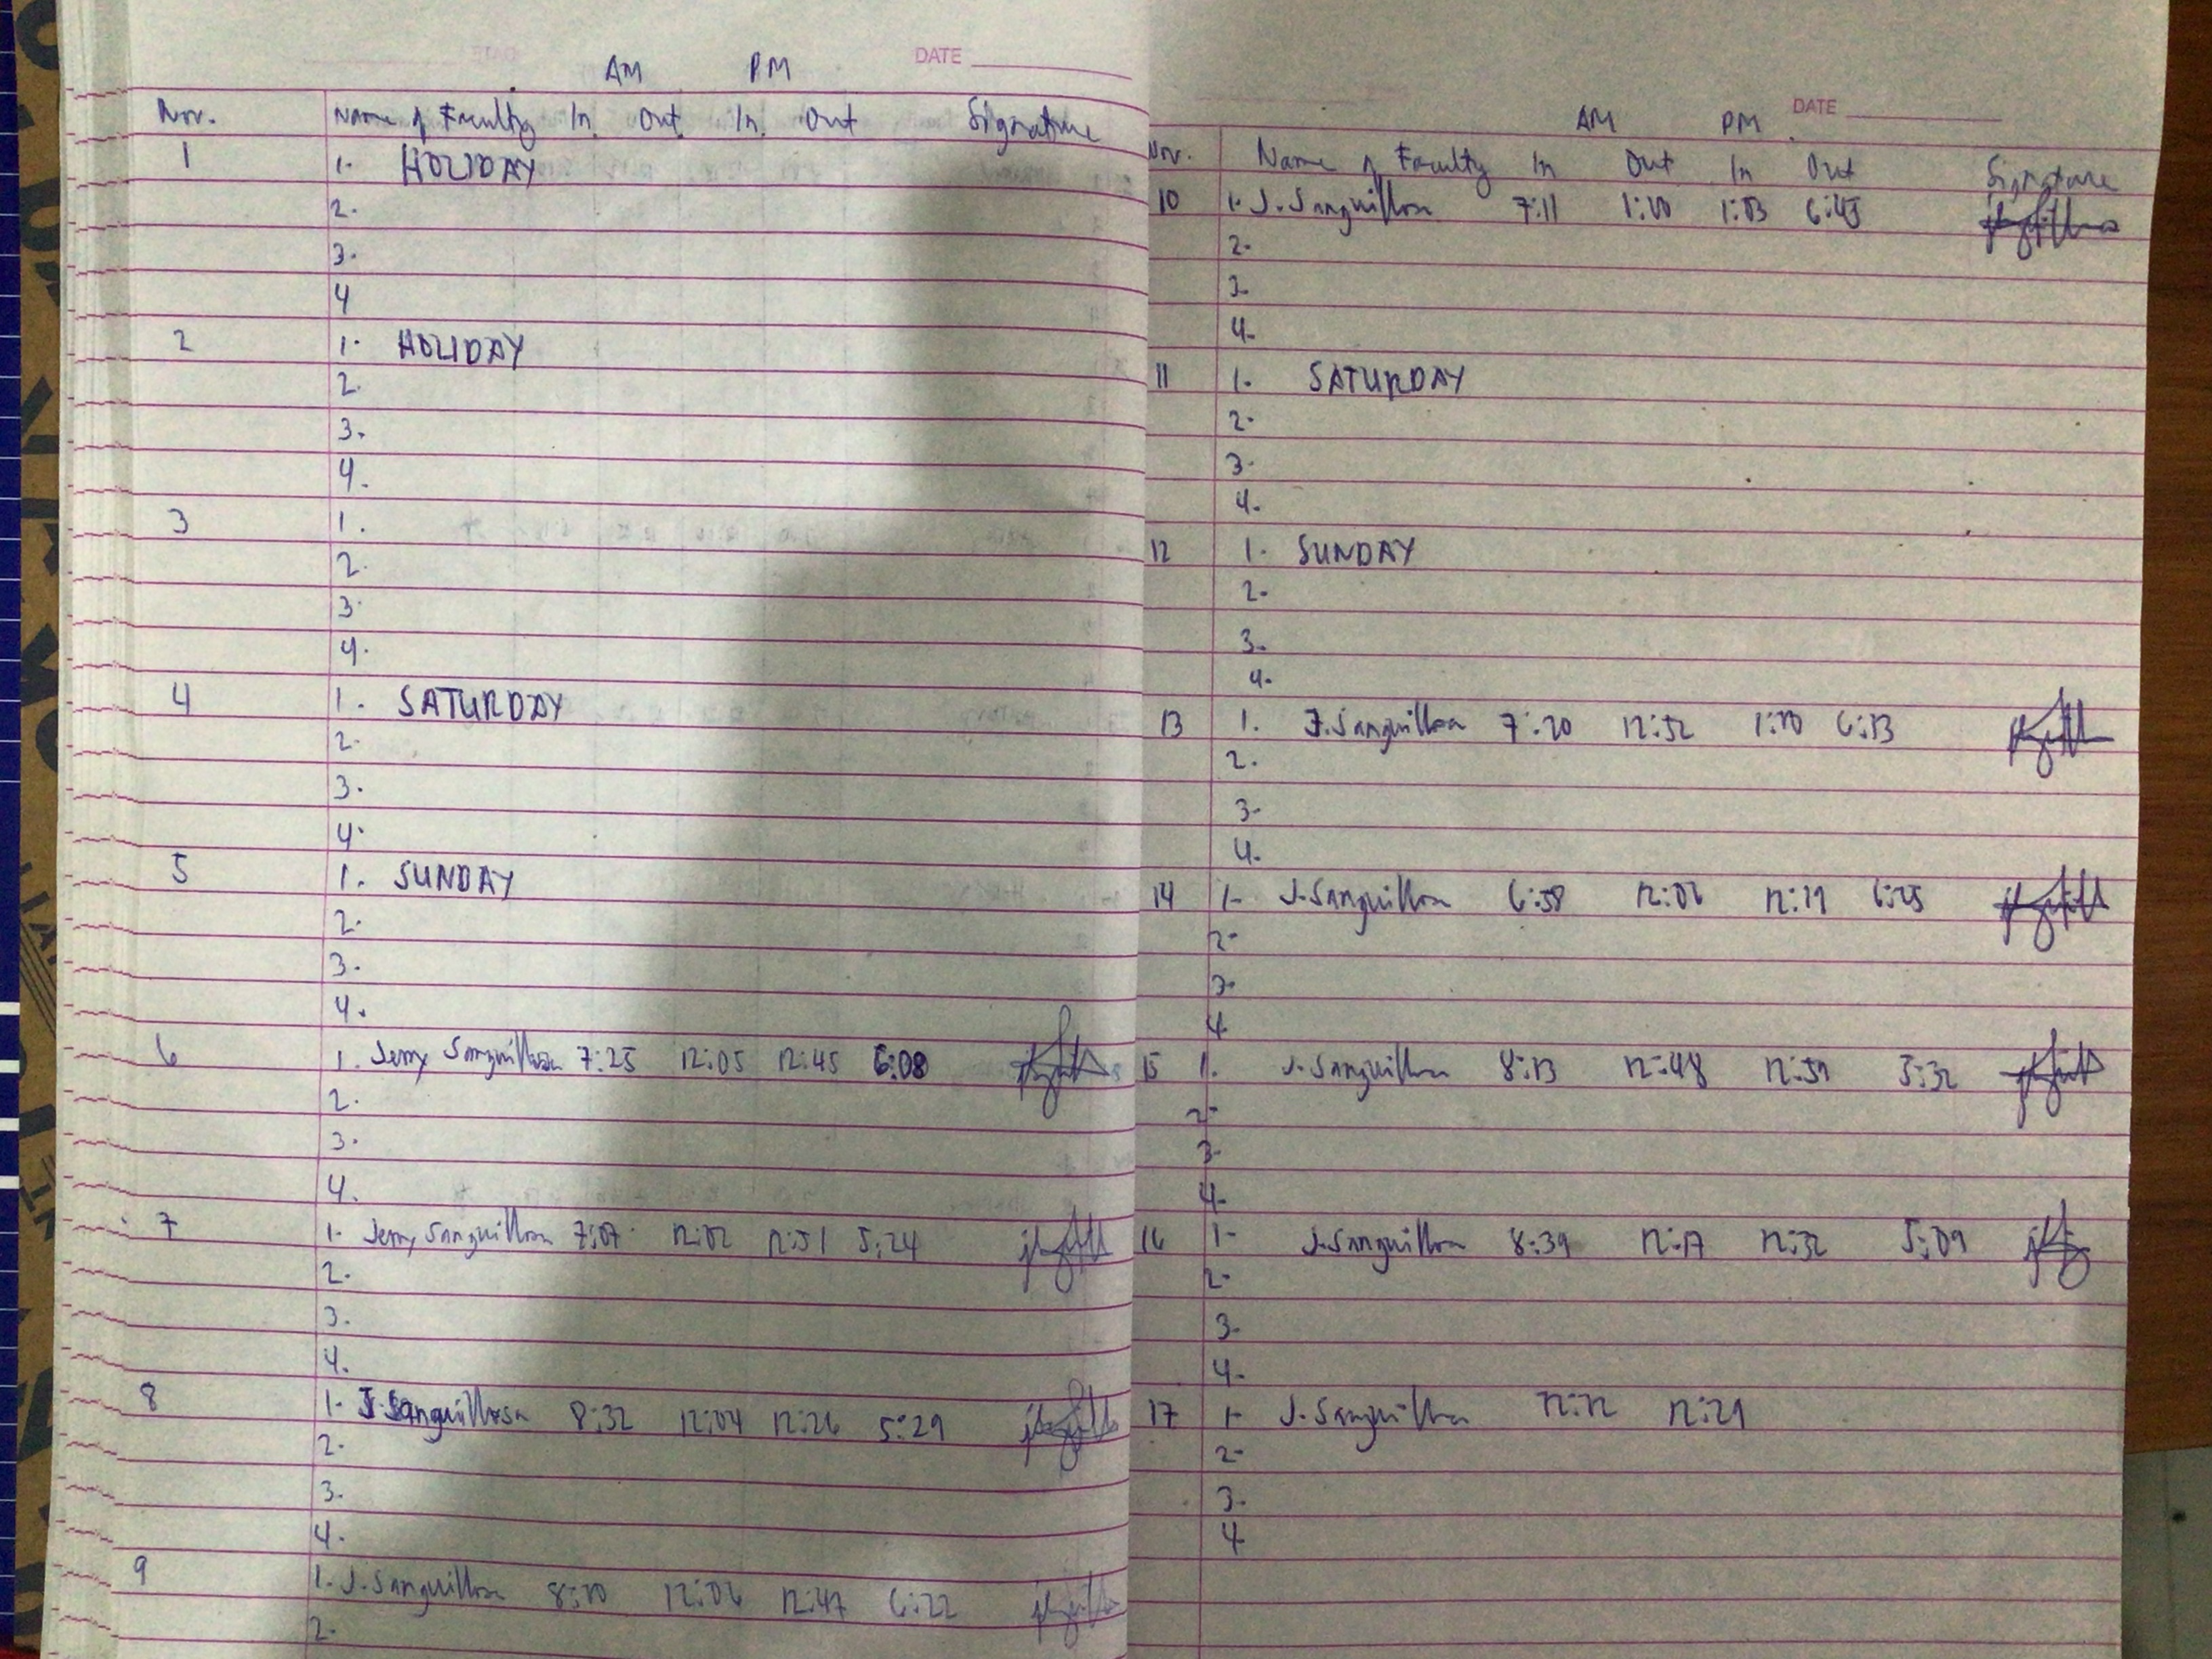 DATE
AM PM
Nov. Name of Faculty In Out In Out Signature
1 1. HOLIDAY
2.
3.
4
2 1. HOLIDAY
2.
3.
4.
3 1.
2.
3.
4.
4 1. SATURDAY
2.
3.
4.
5 1. SUNDAY
2.
3.
4.
6 1. Jerry Sanguillosa 7:25 12:05 12:45 6:08
2.
3.
4.
7 1. Jerry Sanguillosa 7:07 12:02 12:51 5:24
2.
3.
4.
8 1. J. Sanguillosa 8:32 12:04 12:26 5:29
2.
3.
4.
9 1. J. Sanguillosa 8:10 12:06 12:47 6:22
2.
DATE
AM PM
Nov. Name of Faculty In Out In Out Signature
10 1. J. Sanguillosa 7:11 1:03 6:45
2.
3.
4.
11 1. SATURDAY
2.
3.
4.
12 1. SUNDAY
2.
3.
4.
13 1. J. Sanguillosa 7:20 12:52 1:10 6:13
2.
3.
4.
14 1. J. Sanguillosa 6:58 12:06 12:19 6:25
2.
3.
4.
15 1. J. Sanguillosa 8:13 12:48 12:59 5:32
2.
3.
4.
16 1. J. Sanguillosa 8:39 12:17 12:32 5:09
2.
3.
4.
17 1. J. Sanguillosa 12:12 12:29
2.
3.
4